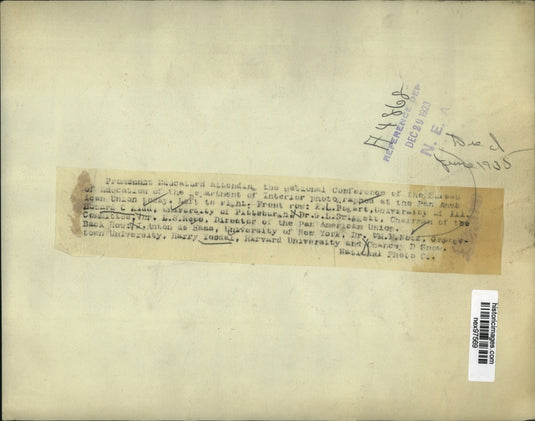 A4868
REFERENCE DEP
DEC 29 1923
N. E. A.
Died
June 1935
Prominent Educators attending the national Conference of the Bureau
of Education of the Department of Interior photographed at the Pan Amer
ican Union today. Left to right; Front row; E.L.Bogart, University of Ill.
University of Pittsburgh, Dr.G.H.Swiggett, Chairman of the
Committee, Dr. L.S.Rowe, Director of the Pan American Union.
Back Row; Anton de Haas, University of New York. Dr. George-
town University, Harry Harvard University and Chancey D Snow.
National Photo C..
historicimages.com
nex97569